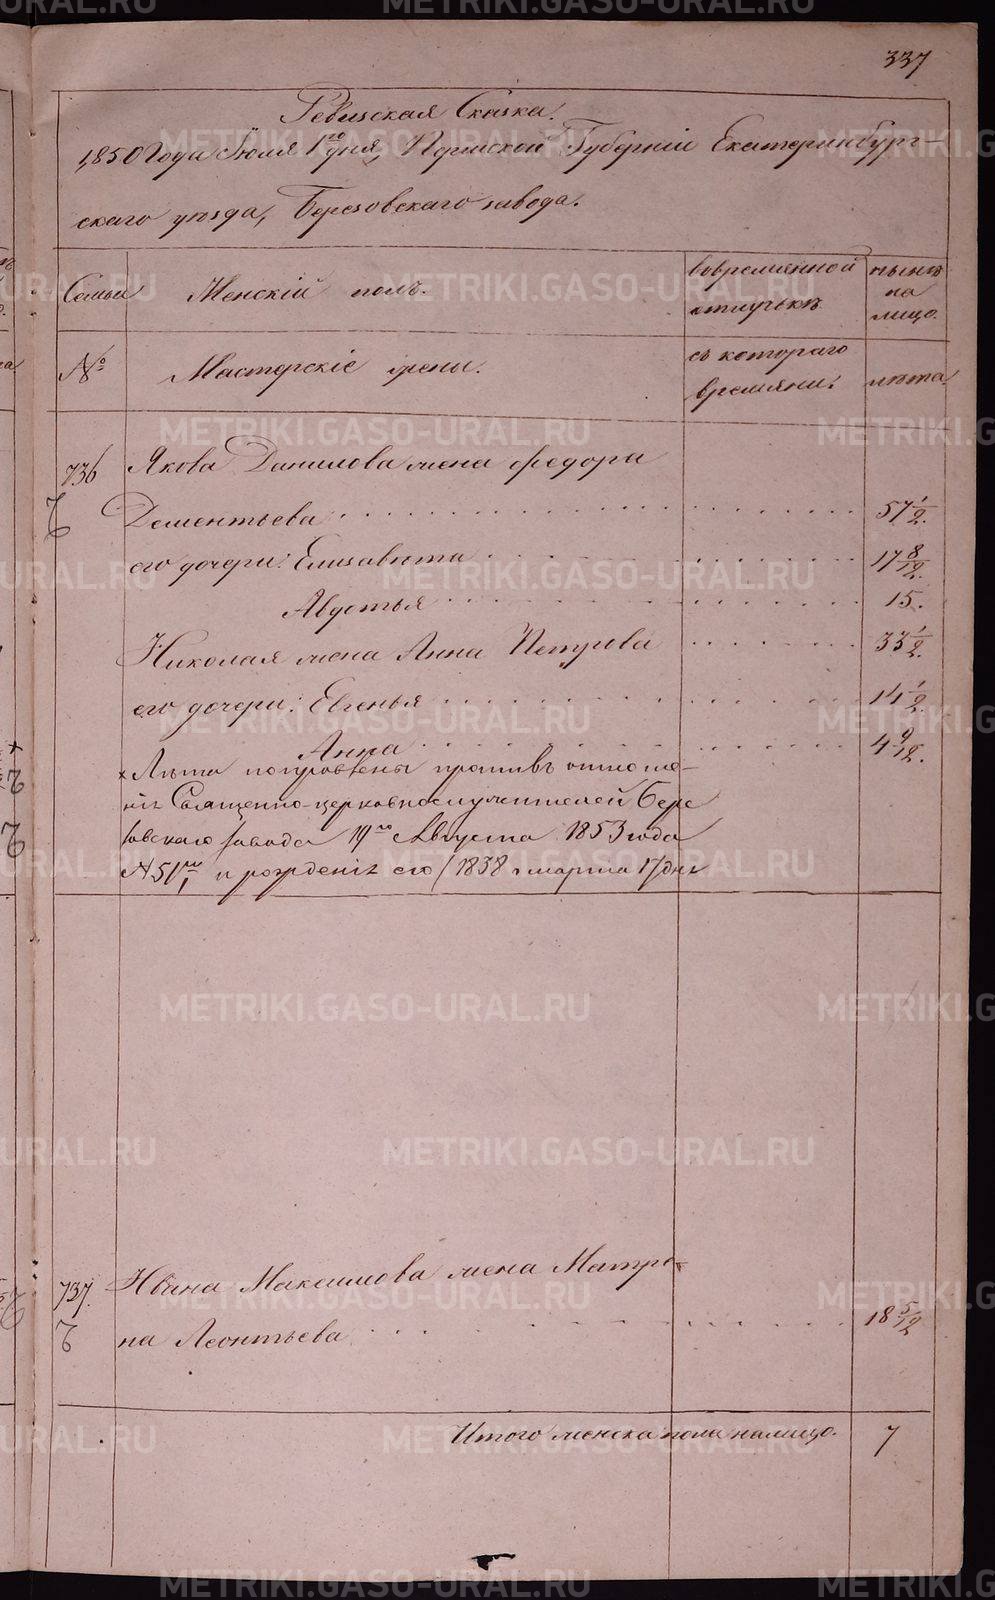 337
Ревизская Сказка.
1850 Года Июля 1го дня, Пермской Губерніи Екатеринбург-
скаго уѣзда, Березовскаго завода.
Семьи Женскій полъ. вовременной отлучькѣ нынѣ на лицо.
№ Мастерскіе жены. съ котораго времяни: лѣта
736 Якова Данилова жена Федора
Дементьева 57 1/2.
его дочери: Елизавета 17 8/12.
Авдотья 15.
Николая жена Анна Петрова 33 1/2.
его дочери: Евгенья 14 1/2.
Анна 4 9/12.
× Лѣта поправлены противъ отноше-
ніѣ Священно-церковнослужителей Бере
зовскаго завода 19го Августа 1853 года
№ 51 и рожденіѣ его 1838 г марта 17 дня
737. Ивана Максимова жена Матре-
на Леонтьева 18 5/12
Итого женска пола налицо. 7
METRIKI.GASO-URAL.RU